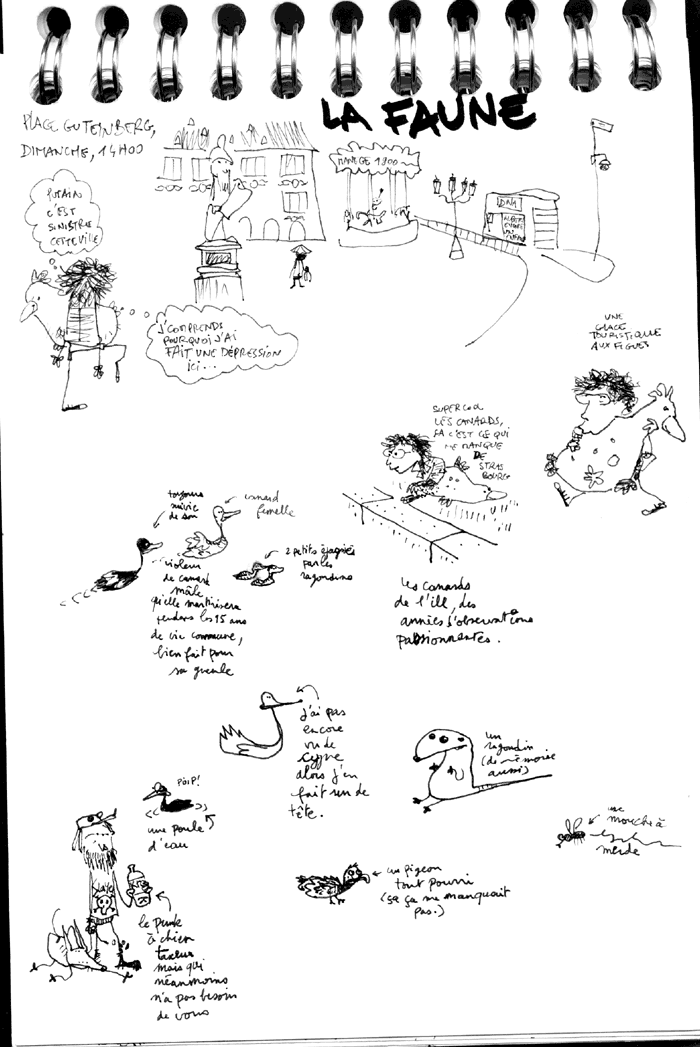 LA FAUNE
PLACE GUTENBERG,
DIMANCHE, 14H00
MANEGE 1900
DNA
PUTAIN
C'EST
SINISTRE
CETTE VILLE
J'COMPRENDS
POURQUOI J'AI
FAIT UNE DÉPRESSION
ICI...
UNE
GLACE
TOURISTIQUE
AUX FIGUES
SUPERCOOL
LES CANARDS,
ÇA C'EST CE QUI
ME MANQUE
DE
STRAS
BOURG
toujours
suivie
de son
canard
femelle
violeur
de canard
mâle
qu'elle martirisera
pendans les 15 ans
de vie commune,
bien fait pour
sa gueule
2 petits épagniés
par les
ragondins
Les canards
de l'ill, des
années d'observations
passionnantes.
j'ai pas
encore
vu de
cygne
alors j'en
fait un de
tête.
un
ragondin
(de mémoire
aussi)
PÖIP!
une poule
d'eau
une
mouche à
merde
un pigeon
tout pourri
(ça ça me manquait
pas.)
le punk
à chien
taxeur
mais qui
néanmoins
n'a pas besoin
de vous